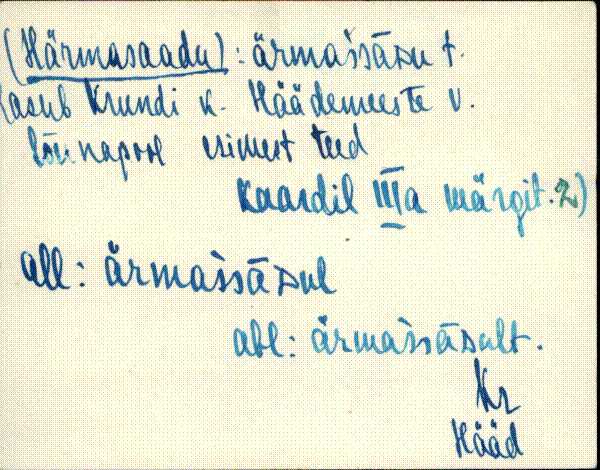 (Härmasaadu): ärmas̀sāᴅu t.
(asub Krundi k. Häädemeeste v.
lõunapool esimest teed
Kaardil IIIa märgit. 2)
all: ärmas̀sāᴅul
abl: ärmas̀sāᴅult.
Kr
Hääd